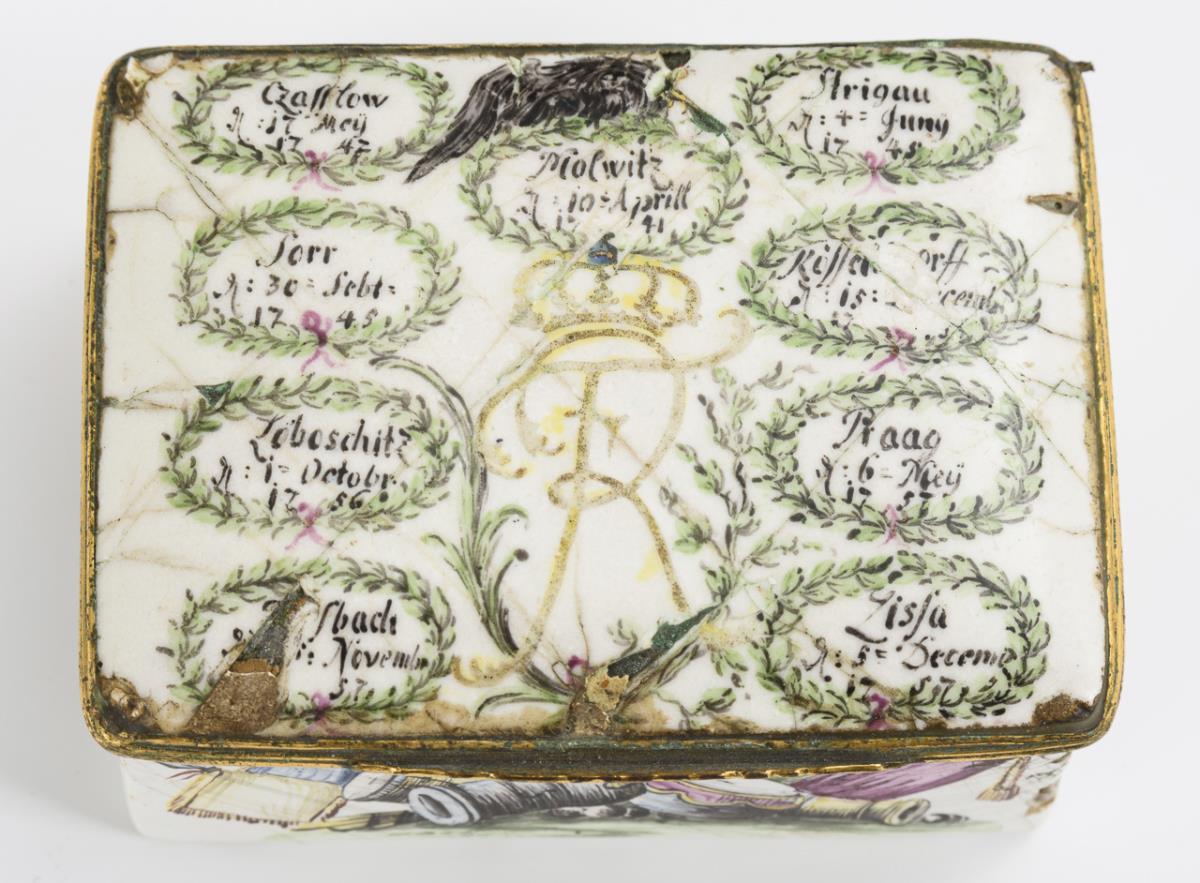 Czasslow
A: 17 = Meÿ
17 42
Molwitz
A: 10 = Aprill
41
Strigau
A: 4 = Juny
17 45
Sorr
A: 30 = Sebt =
17 45
A: 15 =
FR
Loboschitz
A: 1 = Octobr
17 56
Praag
A: 6 = Meÿ
17 57
sbach
Novembr
57
Lissa
A: 5 = Decemb
17 57